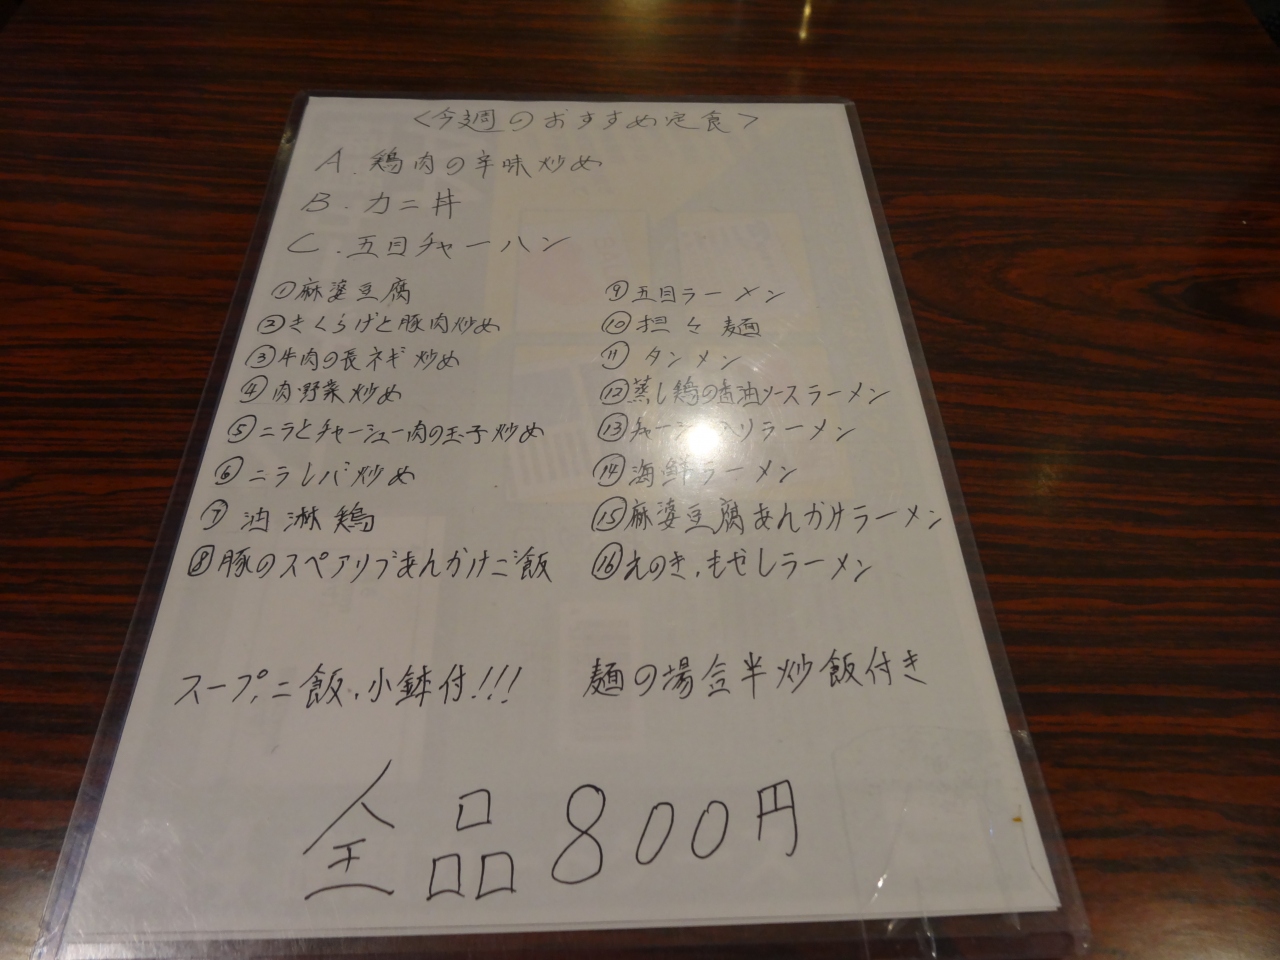 <今週のおすすめ定食>
A. 鶏肉の辛味炒め
B. カニ丼
C. 五目チャーハン
①麻婆豆腐
②きくらげと豚肉炒め
③牛肉の長ネギ炒め
④肉野菜炒め
⑤ニラとチャーシュー肉の玉子炒め
⑥ニラレバ炒め
⑦油淋鶏
⑧豚のスペアリブあんかけご飯
⑨五目ラーメン
⑩担々麺
⑪タンメン
⑫蒸し鶏の醤油ソースラーメン
⑬チャーシュー入りラーメン
⑭海鮮ラーメン
⑮麻婆豆腐あんかけラーメン
⑯えのき、もやしラーメン
スープ、ご飯、小鉢付!!!
麺の場合半炒飯付き
全品800円